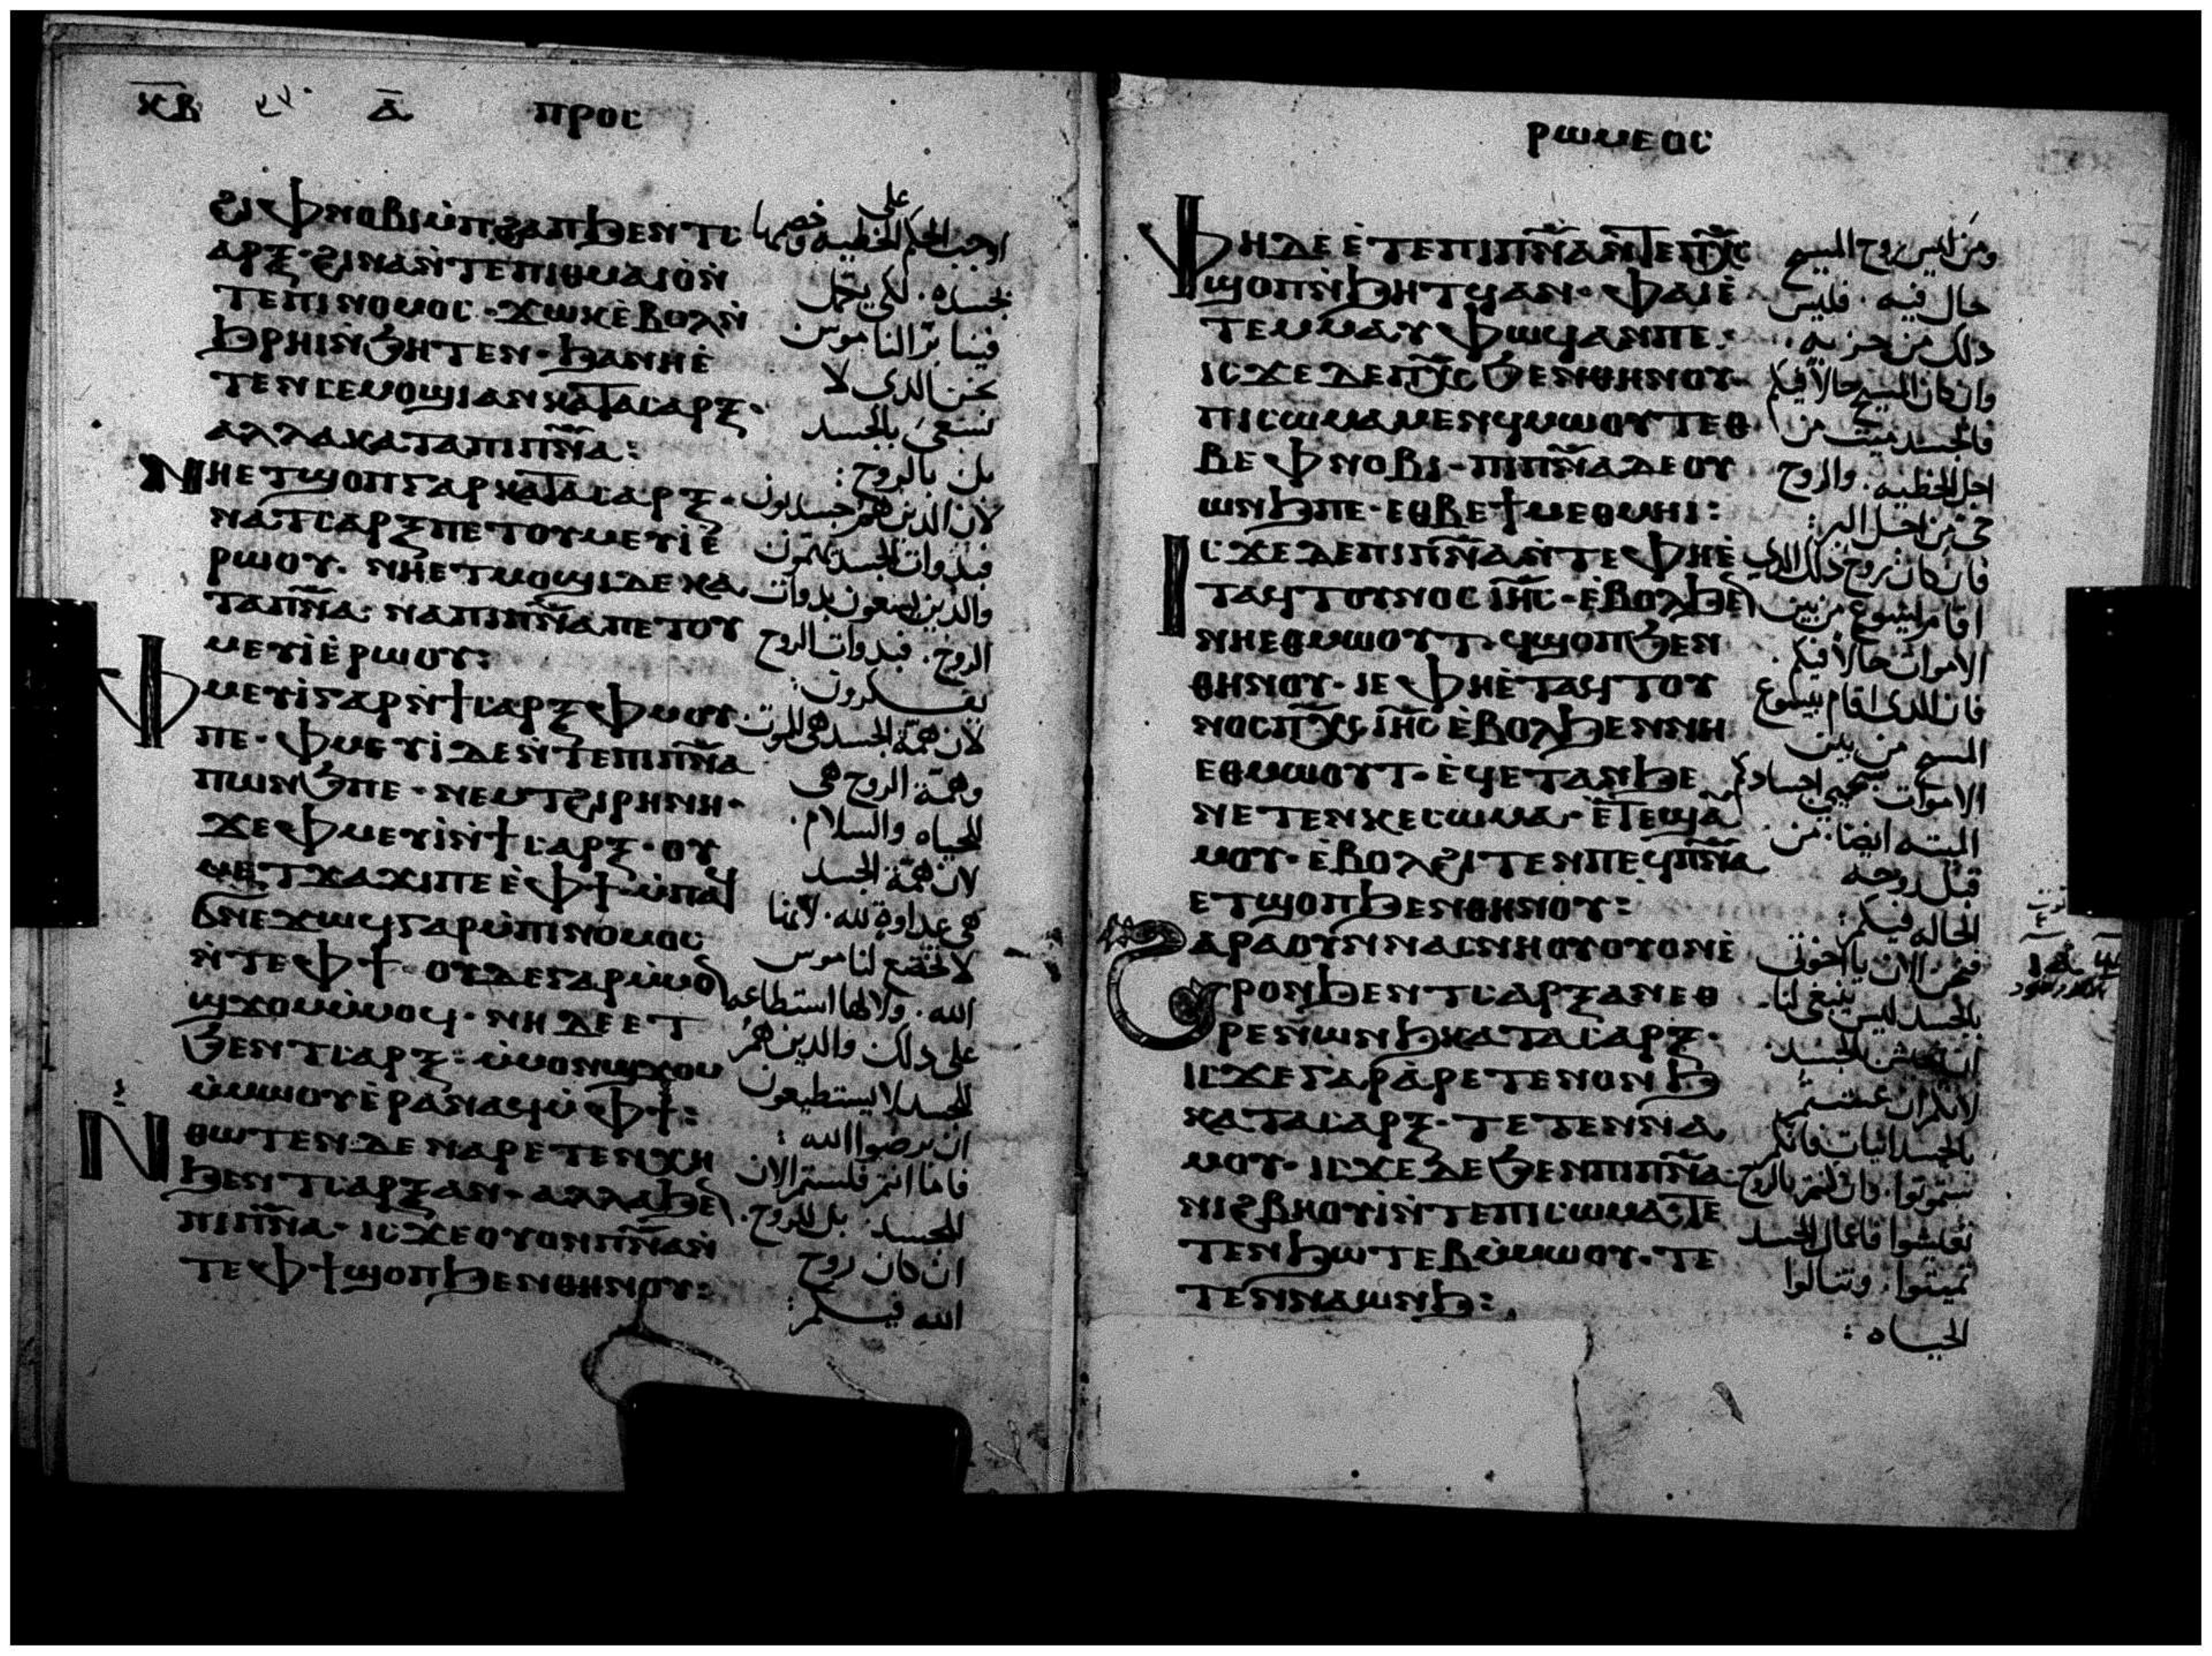 ⲕ̅ⲃ̅ ⲁ̅ ⲡⲣⲟⲥ
ϩⲓⲫⲛⲟⲃⲓⲙ̀ⲡϩⲁⲡϧⲉⲛⲧⲥ
ⲁⲣⲝ· ϩⲓⲛⲁⲛ̀ⲧⲉⲡⲓⲑⲙⲁⲓⲟⲛ̀
ⲧⲉⲡⲓⲛⲟⲙⲟⲥ· ϫⲱⲕⲉ̀ⲃⲟⲗⲛ̀
ϧⲣⲏⲓⲛ̀ϧⲏⲧⲉⲛ· ϧⲁⲛⲏⲉ̀
ⲧⲉⲛⲥⲉⲙⲟϣⲓⲁⲛⲕⲁⲧⲁⲥⲁⲣⲝ·
ⲁⲗⲗⲁⲕⲁⲧⲁⲡⲓⲡ̅ⲛ̅ⲁ̅:
ⲛⲏⲉⲧϣⲟⲡⲅⲁⲣⲕⲁⲧⲁⲥⲁⲣⲝ·
ⲛⲁⲧⲥⲁⲣⲝⲡⲉⲧⲟⲩⲙⲉⲩⲓⲉ̀
ⲣⲱⲟⲩ· ⲛⲏⲉⲧⲙⲟϣⲓⲇⲉⲕⲁ
ⲧⲁⲡ̅ⲛ̅ⲁ̅· ⲛⲁⲡⲓⲡ̅ⲛ̅ⲁ̅ⲡⲉⲧⲟⲩ
ⲙⲉⲩⲓⲉ̀ⲣⲱⲟⲩ:
ⲫⲙⲉⲩⲓⲅⲁⲣⲛ̀ϯⲥⲁⲣⲝⲫⲙⲟⲩ
ⲡⲉ· ⲫⲙⲉⲩⲓⲇⲉⲛ̀ⲧⲉⲡⲓⲡ̅ⲛ̅ⲁ̅
ⲡⲱⲛϧⲡⲉ· ⲛⲉⲙⲧϩⲓⲣⲏⲛⲏ·
ϫⲉⲫⲙⲉⲩⲓⲛ̀ϯⲥⲁⲣⲝ· ⲟⲩ
ⲙⲉⲧϫⲁϫⲓⲡⲉⲉ̀ⲫϯ· ⲙ̀ⲡⲁⲥ
ϭⲛⲉϫⲱϥⲅⲁⲣⲙ̀ⲡⲓⲛⲟⲙⲟⲥ
ⲛ̀ⲧⲉⲫϯ· ⲟⲩⲇⲉⲅⲁⲣⲙ̀ⲙⲟⲛ
ϣϫⲟⲙⲙ̀ⲙⲟϥ· ⲛⲏⲇⲉⲉⲧ
ϧⲉⲛⲧⲥⲁⲣⲝ: ⲙ̀ⲙⲟⲛϣϫⲟⲙ
ⲙ̀ⲙⲱⲟⲩⲉ̀ⲣⲁⲛⲁϥⲙ̀ⲫϯ:
ⲛⲑⲱⲧⲉⲛⲇⲉⲛⲁⲣⲉⲧⲉⲛⲭⲏ
ϧⲉⲛⲧⲥⲁⲣⲝⲁⲛ· ⲁⲗⲗⲁϧⲉⲛ
ⲡⲓⲡ̅ⲛ̅ⲁ̅· ⲓⲥϫⲉⲟⲩⲟⲛⲡ̅ⲛ̅ⲁ̅ⲛ̀
ⲧⲉⲫϯϣⲟⲡϧⲉⲛⲑⲏⲛⲟⲩ:
على
اوجب الحكم للخطيه
بجسده. لكى يكمل
فينا بر الناموس
نحن الدى لا
نسعى بالجسد
بل بالروح:
لان الدين هم جسدانيون
فبدوات الجسد يهتمون
والدين يسعون بدوات
الروح. فبدوات الروح
يفكرون:
لان همة الجسد هى الموت
وهمة الروح هى
الحياه والسلام.
لان همة الجسد
هى عداوة لله. لانها
لا تخضع لناموس
الله. ولا لها استطاعه
على دلك والدين هم
للجسد لا يستطيعون
ان يرضوا الله:
فاما انتم فلستم الان
للجسد. بل للروح.
ان كان روح
الله فيكم:
ⲣⲱⲙⲉⲟⲥ
ⲫⲏⲇⲉⲉ̀ⲧⲉⲡⲓⲡ̅ⲛ̅ⲁ̅ⲛ̀ⲧⲉⲡ̅ⲭ̅ⲥ̅
ϣⲟⲡⲛ̀ϧⲏⲧϥⲁⲛ· ⲫⲁⲓⲉ̀
ⲧⲉⲙⲙⲁⲩⲫⲱϥⲁⲛⲡⲉ:
ⲓⲥϫⲉⲇⲉⲡ̅ⲭ̅ⲥ̅ϧⲉⲛⲑⲏⲛⲟⲩ·
ⲡⲓⲥⲱⲙⲁⲙⲉⲛϥⲙⲱⲟⲩⲧⲉⲑ
ⲃⲉⲫⲛⲟⲃⲓ· ⲡⲓⲡ̅ⲛ̅ⲁ̅ⲇⲉⲟⲩ
ⲱⲛϧⲡⲉ· ⲉⲑⲃⲉϯⲙⲉⲑⲙⲏⲓ:
ⲓⲥϫⲉⲇⲉⲡⲓⲡ̅ⲛ̅ⲁ̅ⲛ̀ⲧⲉⲫⲏⲉ̀
ⲧⲁϥⲧⲟⲩⲛⲟⲥⲓ̅ⲏ̅ⲥ̅· ⲉ̀ⲃⲟⲗϧⲉⲛ
ⲛⲏⲉⲑⲙⲱⲟⲩⲧ· ϥϣⲟⲡϧⲉⲛ
ⲑⲏⲛⲟⲩ· ⲓⲉⲫⲏⲉ̀ⲧⲁϥⲧⲟⲩ
ⲛⲟⲥⲡ̅ⲭ̅ⲥ̅ⲓ̅ⲏ̅ⲥ̅ⲉ̀ⲃⲟⲗϧⲉⲛⲛⲏ
ⲉⲑⲙⲱⲟⲩⲧ· ⲉ̀ϥⲉⲧⲁⲛϧⲉ
ⲛⲉⲧⲉⲛⲕⲉⲥⲱⲙⲁ· ⲉ̀ⲧⲉϣⲁ
ⲙⲟⲩ· ⲉ̀ⲃⲟⲗϩⲓⲧⲉⲛⲡⲉϥⲡ̅ⲛ̅ⲁ̅
ⲉⲧϣⲟⲡϧⲉⲛⲑⲏⲛⲟⲩ:
ϩⲁⲣⲁⲟⲩⲛⲛⲁⲥⲛⲏⲟⲩⲟⲩⲟⲛⲉ̀
ⲣⲟⲛϧⲉⲛⲧⲥⲁⲣⲝⲁⲛⲉⲑ
ⲣⲉⲛⲱⲛϧⲕⲁⲧⲁⲥⲁⲣⲝ·
ⲓⲥϫⲉⲅⲁⲣⲁ̀ⲣⲉⲧⲉⲛⲟⲛϧ
ⲕⲁⲧⲁⲥⲁⲣⲝ· ⲧⲉⲧⲉⲛⲛⲁ
ⲙⲟⲩ· ⲓⲥϫⲉⲇⲉϧⲉⲛⲡⲓⲡ̅ⲛ̅ⲁ̅·
ⲛⲓϩⲃⲏⲟⲩⲓⲛ̀ⲧⲉⲡⲓⲥⲱⲙⲁ· ⲧⲉ
ⲧⲉⲛϧⲱⲧⲉⲃⲙ̀ⲙⲱⲟⲩ· ⲧⲉ
ⲧⲉⲛⲛⲁⲱⲛϧ:
ومن ليس روح المسيح
حال فيه. فليس
دلك من حزبه.
وان كان المسيح حالا فيكم
فالجسد ميت من
اجل الخطيه. والروح
حى من اجل البر:
فان كان روح دلك الدى
اقام ايسوع من بين
الاموات حالا فيكم.
فان الدى اقام ييسوع
المسيح من بين
الاموات سيحيى اجسادكم
الميته ايضا. من
قبل روحه
الحاله فيكم:
فنحن الان يا اخوتى
بالجسد ليس ينبغى لنا
ان نعيش بالجسد
لانكم ان عشتم
بالجسدانيات فانكم
ستموتوا. وان كنتم بالروح
تميتوا. وتنالوا
الحياه: